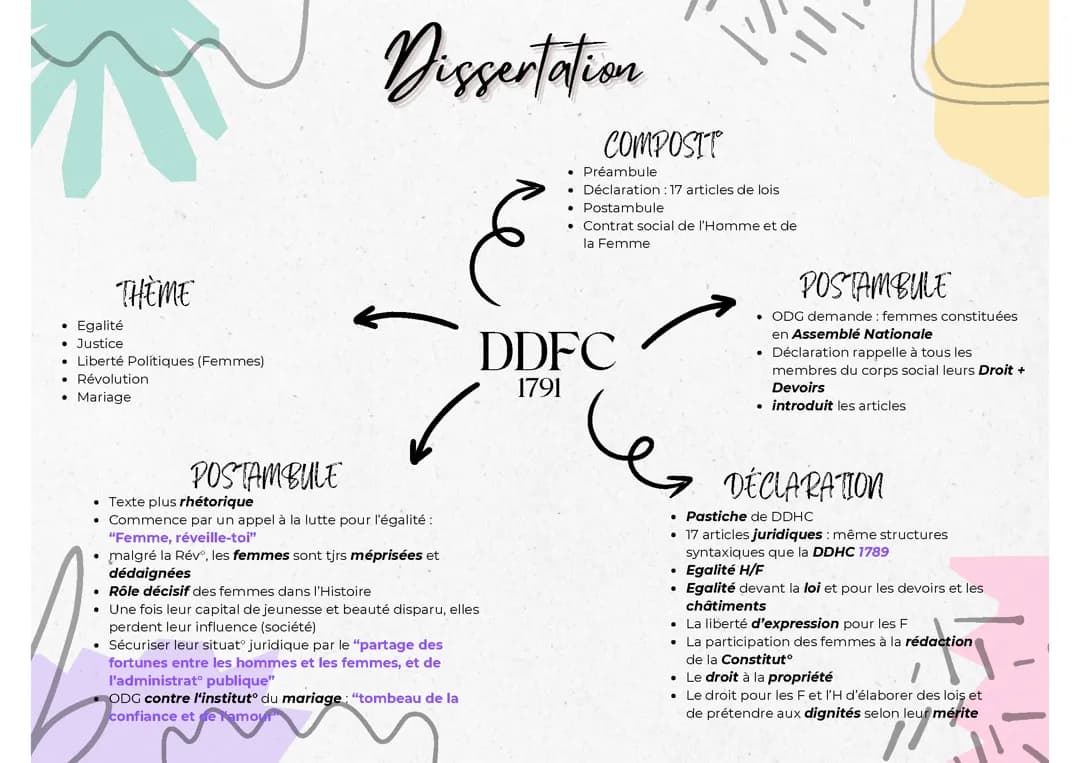 Dissertation
COMPOSIT°
• Préambule
• Déclaration : 17 articles de lois
• Postambule
• Contrat social de l'Homme et de
la Femme
THÈME
• Egalité
• Justice
• Liberté Politiques (Femmes)
• Révolution
• Mariage
DDFC
1791
POSTAMBULE
• ODG demande : femmes constituées
en Assemblé Nationale
• Déclaration rappelle à tous les
membres du corps social leurs Droit +
Devoirs
• introduit les articles
POSTAMBULE
• Texte plus rhétorique
• Commence par un appel à la lutte pour l'égalité :
“Femme, réveille-toi”
• malgré la Rév°, les femmes sont tjrs méprisées et
dédaignées
• Rôle décisif des femmes dans l'Histoire
• Une fois leur capital de jeunesse et beauté disparu, elles
perdent leur influence (société)
• Sécuriser leur situat° juridique par le “partage des
fortunes entre les hommes et les femmes, et de
l'administrat° publique”
• ODG contre l'institut° du mariage : “tombeau de la
confiance et de l'amour”
DÉCLARATION
• Pastiche de DDHC
• 17 articles juridiques : même structures
syntaxiques que la DDHC 1789
• Egalité H/F
• Egalité devant la loi et pour les devoirs et les
châtiments
• La liberté d'expression pour les F
• La participation des femmes à la rédaction
de la Constitut°
• Le droit à la propriété
• Le droit pour les F et l'H d'élaborer des lois et
de prétendre aux dignités selon leur mérite